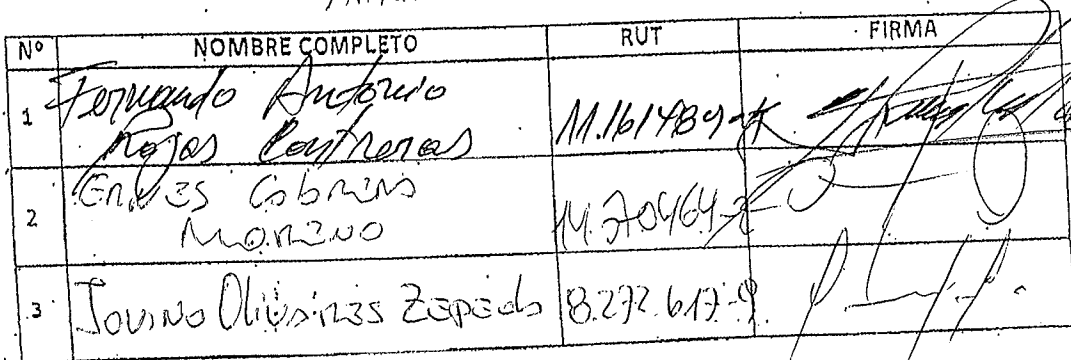 Nº NOMBRE COMPLETO RUT FIRMA
1 Fernando Antonio
Rojas Contreras 11.161.489-K
2 Cabrera
Moreno
3 Jovino Olivares Zepeda 8.272.617-9